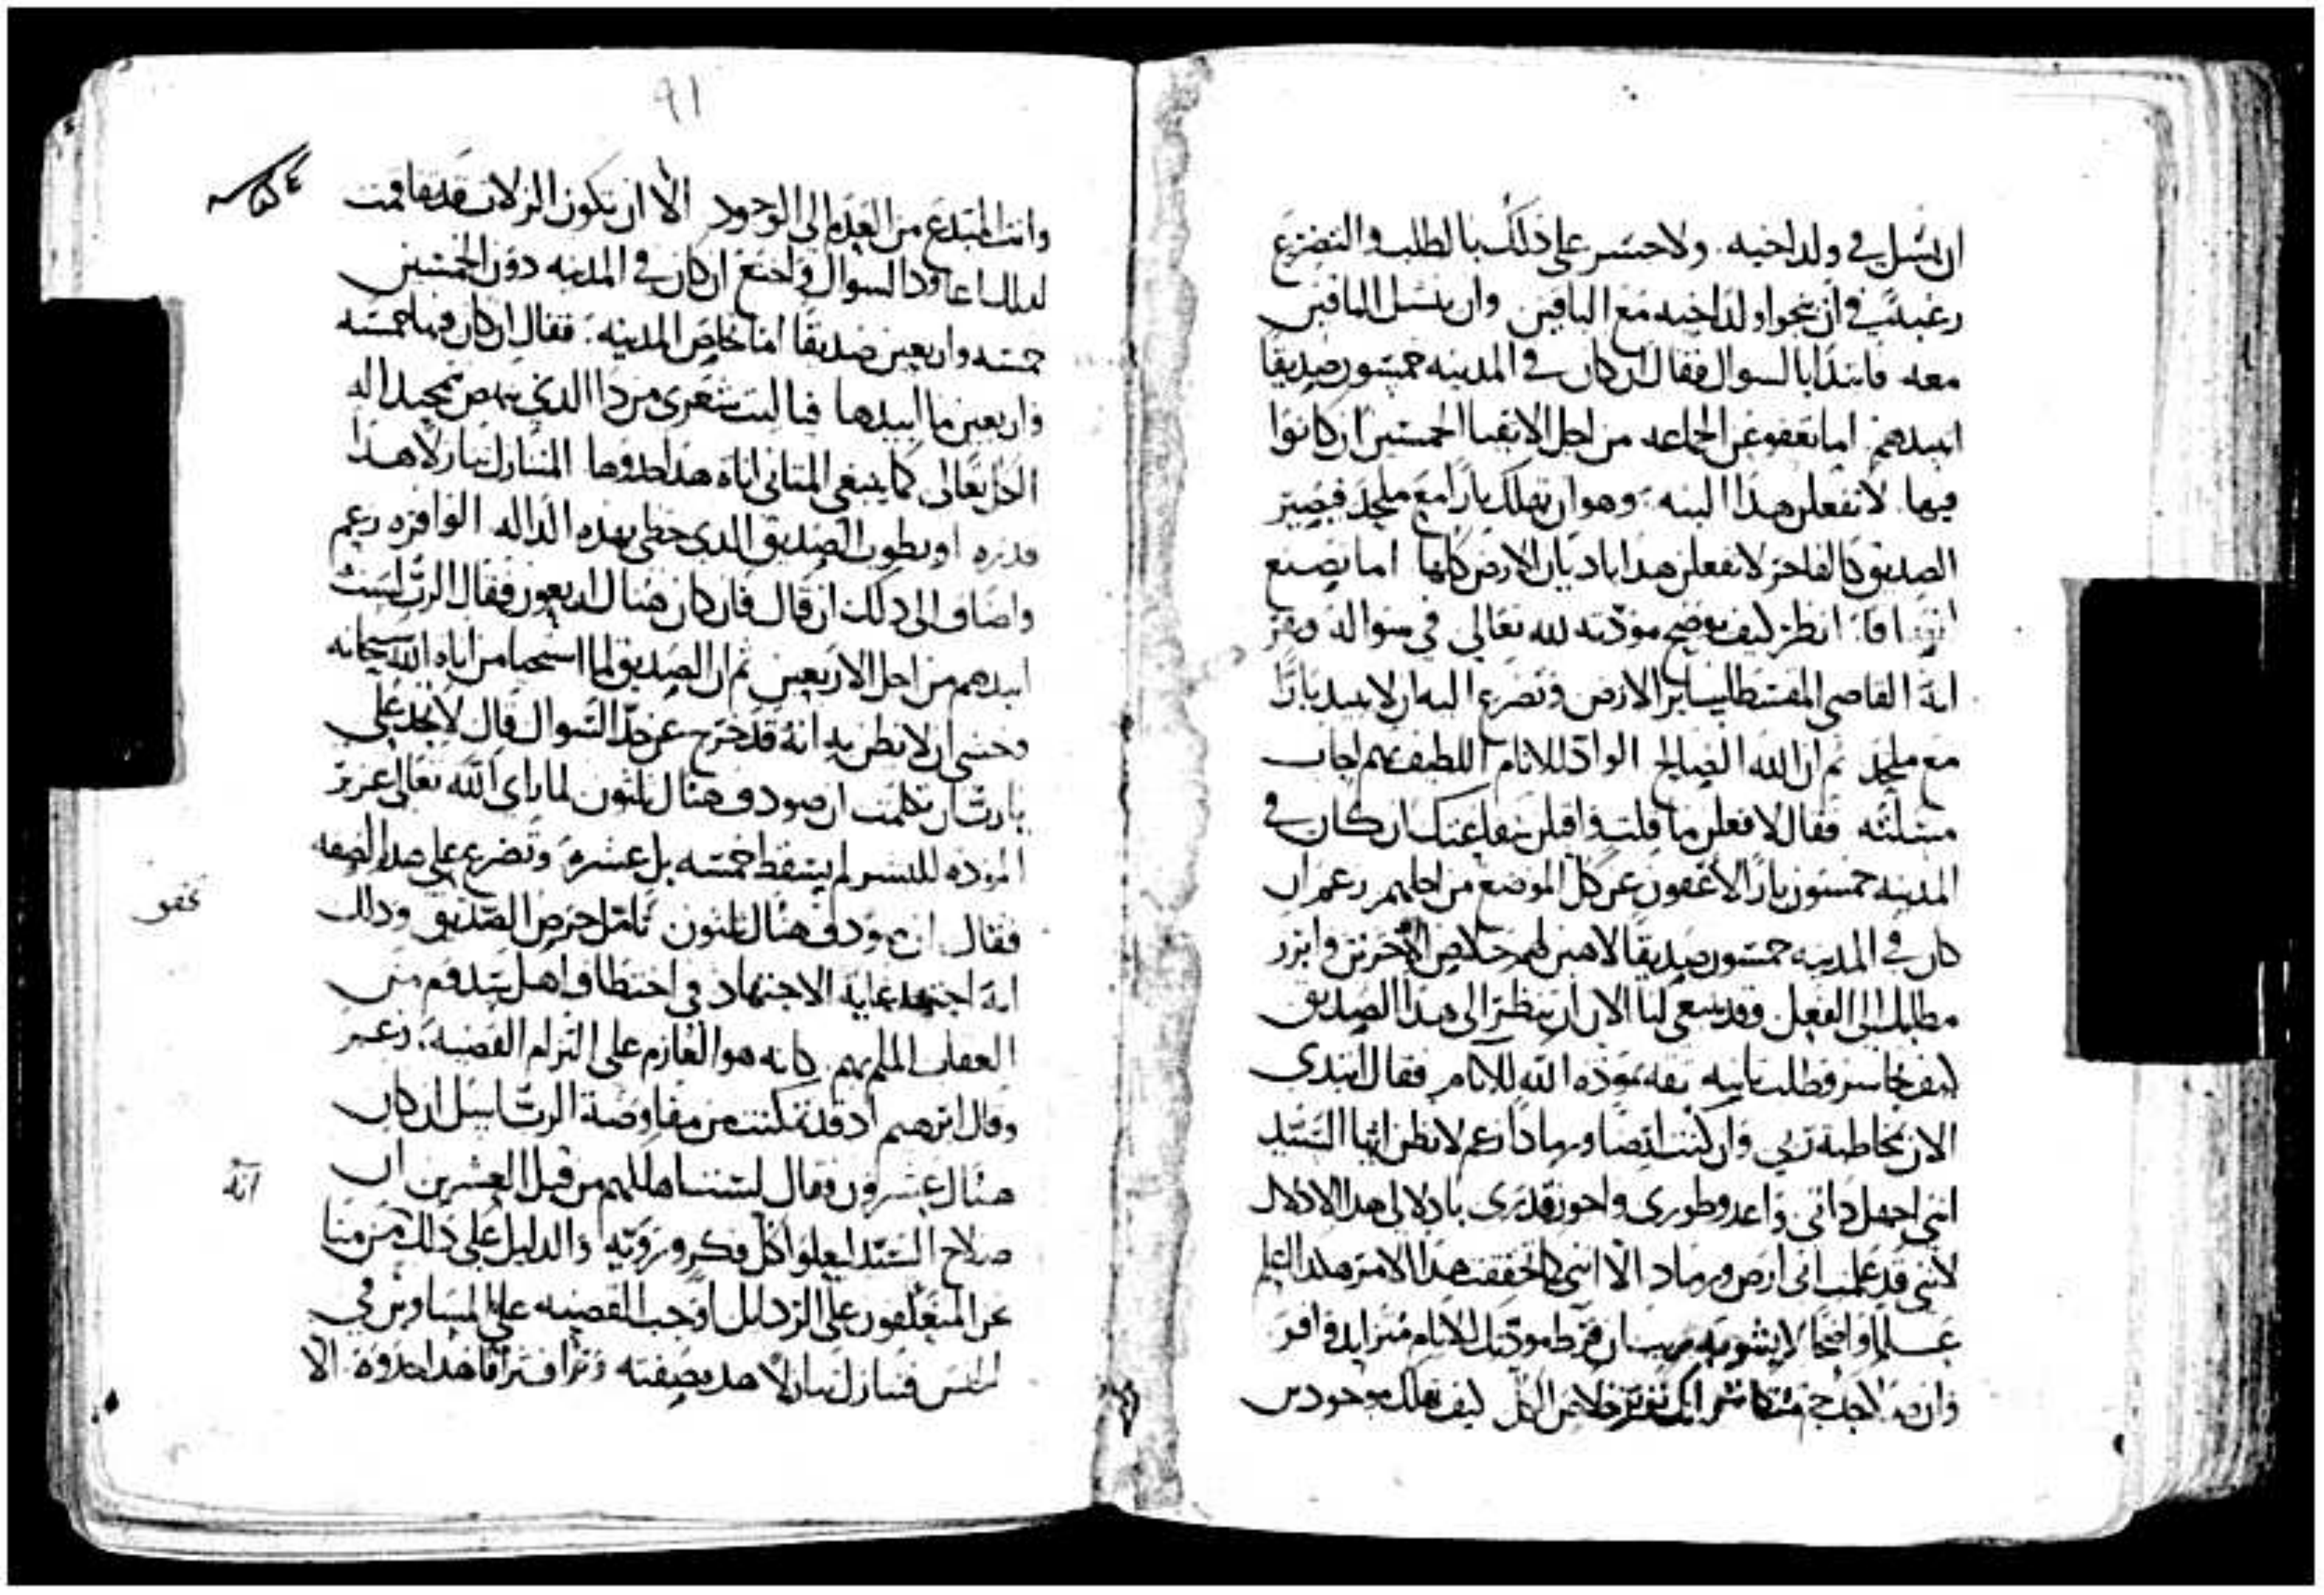 ان يسل في ولد اخيه. ولا حسر على ذلك بالطلب والتضرع
رغبة في ان ينجوا ولد اخيه مع الباقين وان ينسل الباقين
معه فابتدا بالسوال فقال ان كان في المدينه خمسون صديقا
اتبيدهم اما تعفو عن الجماعه من اجل الاتقيا الخمسين ان كانوا
فيها. لا تفعلن هذا البته. وهو ان تهلك بارا مع ملحد فيصير
الصديق كالفاجر لا تفعلن هذا يا ديان الارض كلها اما تصنع
انظر كيف يوضح مودته لله تعالى في سواله ويقر
انه القاضي المقسط لساير الارض وتضرع اليه ان لا يبيد بارا
مع ملحد ثم ان الله الصالح الوادّ للانام اللطيف بهم اجاب
مسلته فقال لافعلن ما قلت واقبلن شفاعتك ان كان في
المدينه خمسون بارا لاعفون عن كل الموضع من اجلهم زعم ان
كان في المدينه خمسون صديقا لاهبن لهم خلاص الاخرين وابرز
مطلبك الى الفعل وقد ينبغي لنا الان ان ننظر الى هذا الصديق
كيف تجاسر وطلب ثانيه ثقه بمودة الله للانام فقال ابتدي
الان بمخاطبة ربي وان كنت ارضا ورمادا زعم لا تظن ايها السيد
انني اجهل ذاتي واعدو طوري واجوز قدري بادلالي هذا الادلال
لانني قد علمت اني ارض ورماد الا انني كما تحققت هذا الامر هكذا اعلم
علما واضحا لا يشوبه ريب ان فرط مودتك للانام متزايد وافر
وان متكاثر انك تريد خلاص الكل كيف تهلك موجودين
٩١
وانت المبتدع من العدم الى الوجود الا ان تكون الزلات قد تفاقمت
لذلك عاود السوال واحتج ان كان في المدينه دون الخمسين
خمسه واربعين صديقا اما تخلص المدينه. فقال ان كان فيها خمسه
واربعين ما ابيدها فيا ليت شعري من ذا الذي ينهض بتمجيد اله
الكل تعالى كما ينبغي المتاني اناة هذا حدها المتنازل تنازلا هذا
قدره او يطوب الصديق الذي حظي بهذه الداله الوافره زعم
واضاف الى ذلك ان قال فان كان هناك اربعون فقال الرب لست
ابيدهم من اجل الاربعين ثم ان الصديق لما استحيا من اناة الله سبحانه
وخشي ان لا يظن به انه قد خرج عن حد السوال قال لا تجد علي
يا رب ان تكلمت ان صودف هناك ثلثون لما راى الله تعالى غزير
المودة للبشر لم يسقط خمسه بل عشرة وتضرع على هذه الصفه
فقال ان صودف هناك ثلثون تامل حرص الصديق وذلك
انه اجتهد غاية الاجتهاد في اختطاف اهل سدوم من
العقاب الملم بهم كانه هو العازم على التزام القضيه. زعم
وقال ابرهيم اذ قد تمكنت من مفاوضة الرب اسل ان كان
هناك عشرون فقال لست اهلكهم من قبل العشرين ان
صلاح السيد ليعلوا كل فكر وروية والدليل على ذلك من منا
نحن المتعلقون على الرذايل اوجب القضيه على المساوين في
الجنس فتنازل تنازلا هذه صفته وتراف ترافا هذا حدوده الا
تحقو
انه